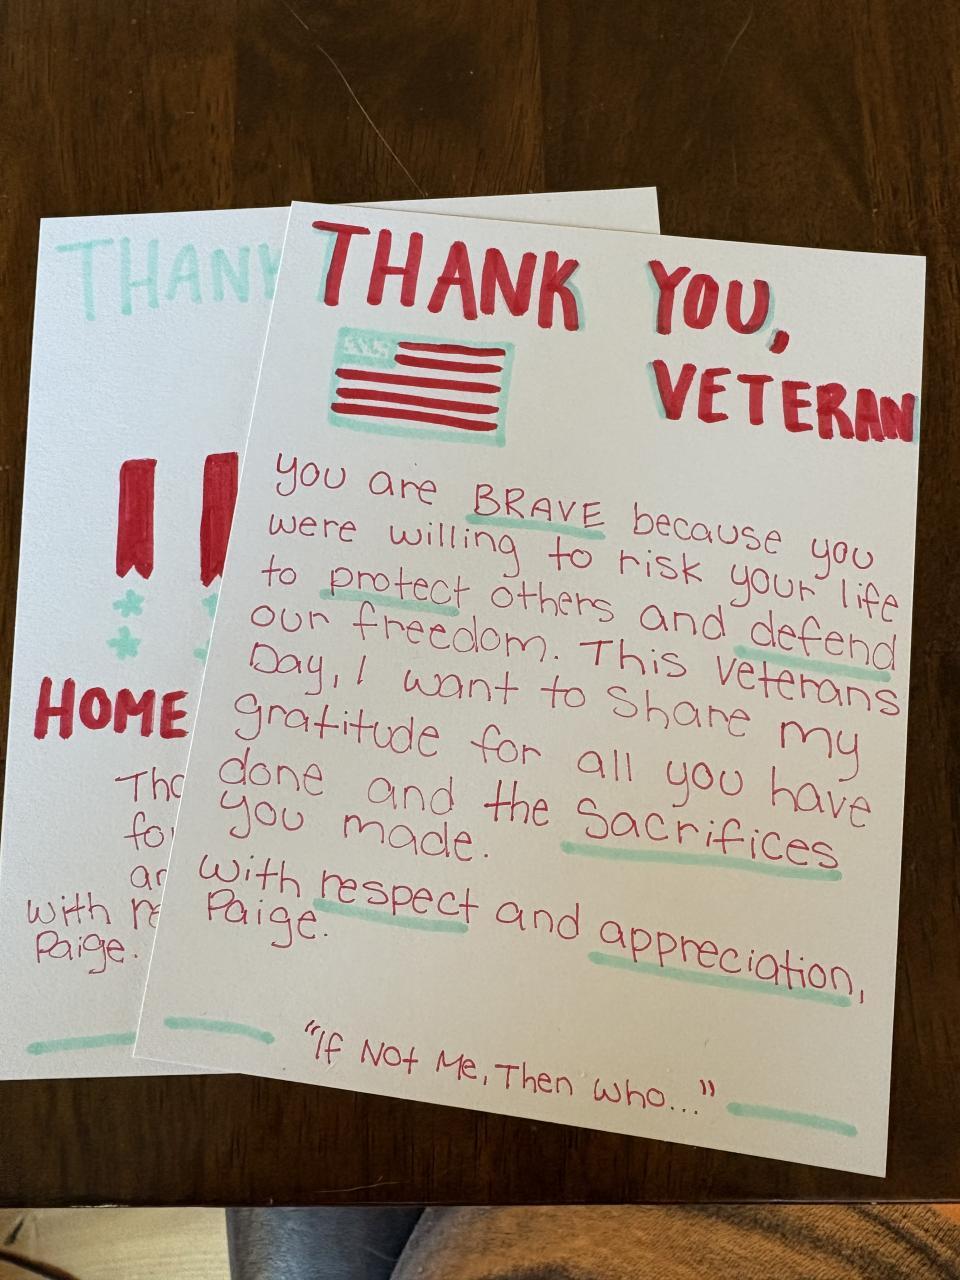 THANK YOU,
VETERAN
you are BRAVE because you
were willing to risk your life
to protect others and defend
our freedom. This Veterans
Day, I want to share my
gratitude for all you have
done and the sacrifices
you made.
with respect and appreciation,
Paige.
"If Not Me, Then Who..."
THANK
HOME
for
with re
Paige.